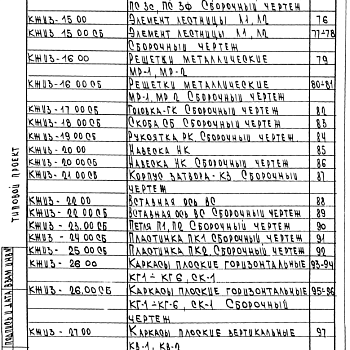 ПС 3с, ПС 3ф Сборочный чертеж
КЖИЗ-15 00 Элемент лестницы Л1, Л2 76
КЖИЗ-15 00 СБ Элемент лестницы Л1, Л2 77-78
Сборочный чертеж
КЖИЗ-16 00 Решетки металлические 79
МР-1, МР-2
КЖИЗ-16 00 СБ Решетки металлические 80-81
МР-1, МР-2 Сборочный чертеж
КЖИЗ-17 00 СБ Головка-ГК Сборочный чертеж 82
КЖИЗ-18 00 СБ Скоба СБ Сборочный чертеж 83
КЖИЗ-19 00 СБ Рукоятка РК, Сборочный чертеж. 84
КЖИЗ-20.00 Навеска НК 85
КЖИЗ-20 00 СБ Навеска НК Сборочный чертеж 86
КЖИЗ-21.00 СВ Корпус затвора-КЗ, Сборочный 87
чертеж
КЖИЗ-22.00 Вставная ось ВС 88
КЖИЗ-22.00 СБ Вставная ось ВС Сборочный чертеж 89
КЖИЗ-23.00 СБ Петля П1, П2 Сборочный чертеж 90
КЖИЗ-24 00 СБ Пластинка ПК1 Сборочный, чертеж, 91
КЖИЗ-25 00 СБ Пластинка ПК2, Сборочный чертеж 92
КЖИЗ-26 00 Каркасы плоские горизонтальные 93-94
КГ1-КГ6, СК-1
КЖИЗ-26.00 СБ Каркасы плоские горизонтальные 95-96
КГ1-КГ-6, СК-1 Сборочный
чертеж
КЖИЗ-27.00 Каркасы плоские вертикальные 97
КВ-1, КВ-2
Типовой проект
Подпись и дата Взам инв N